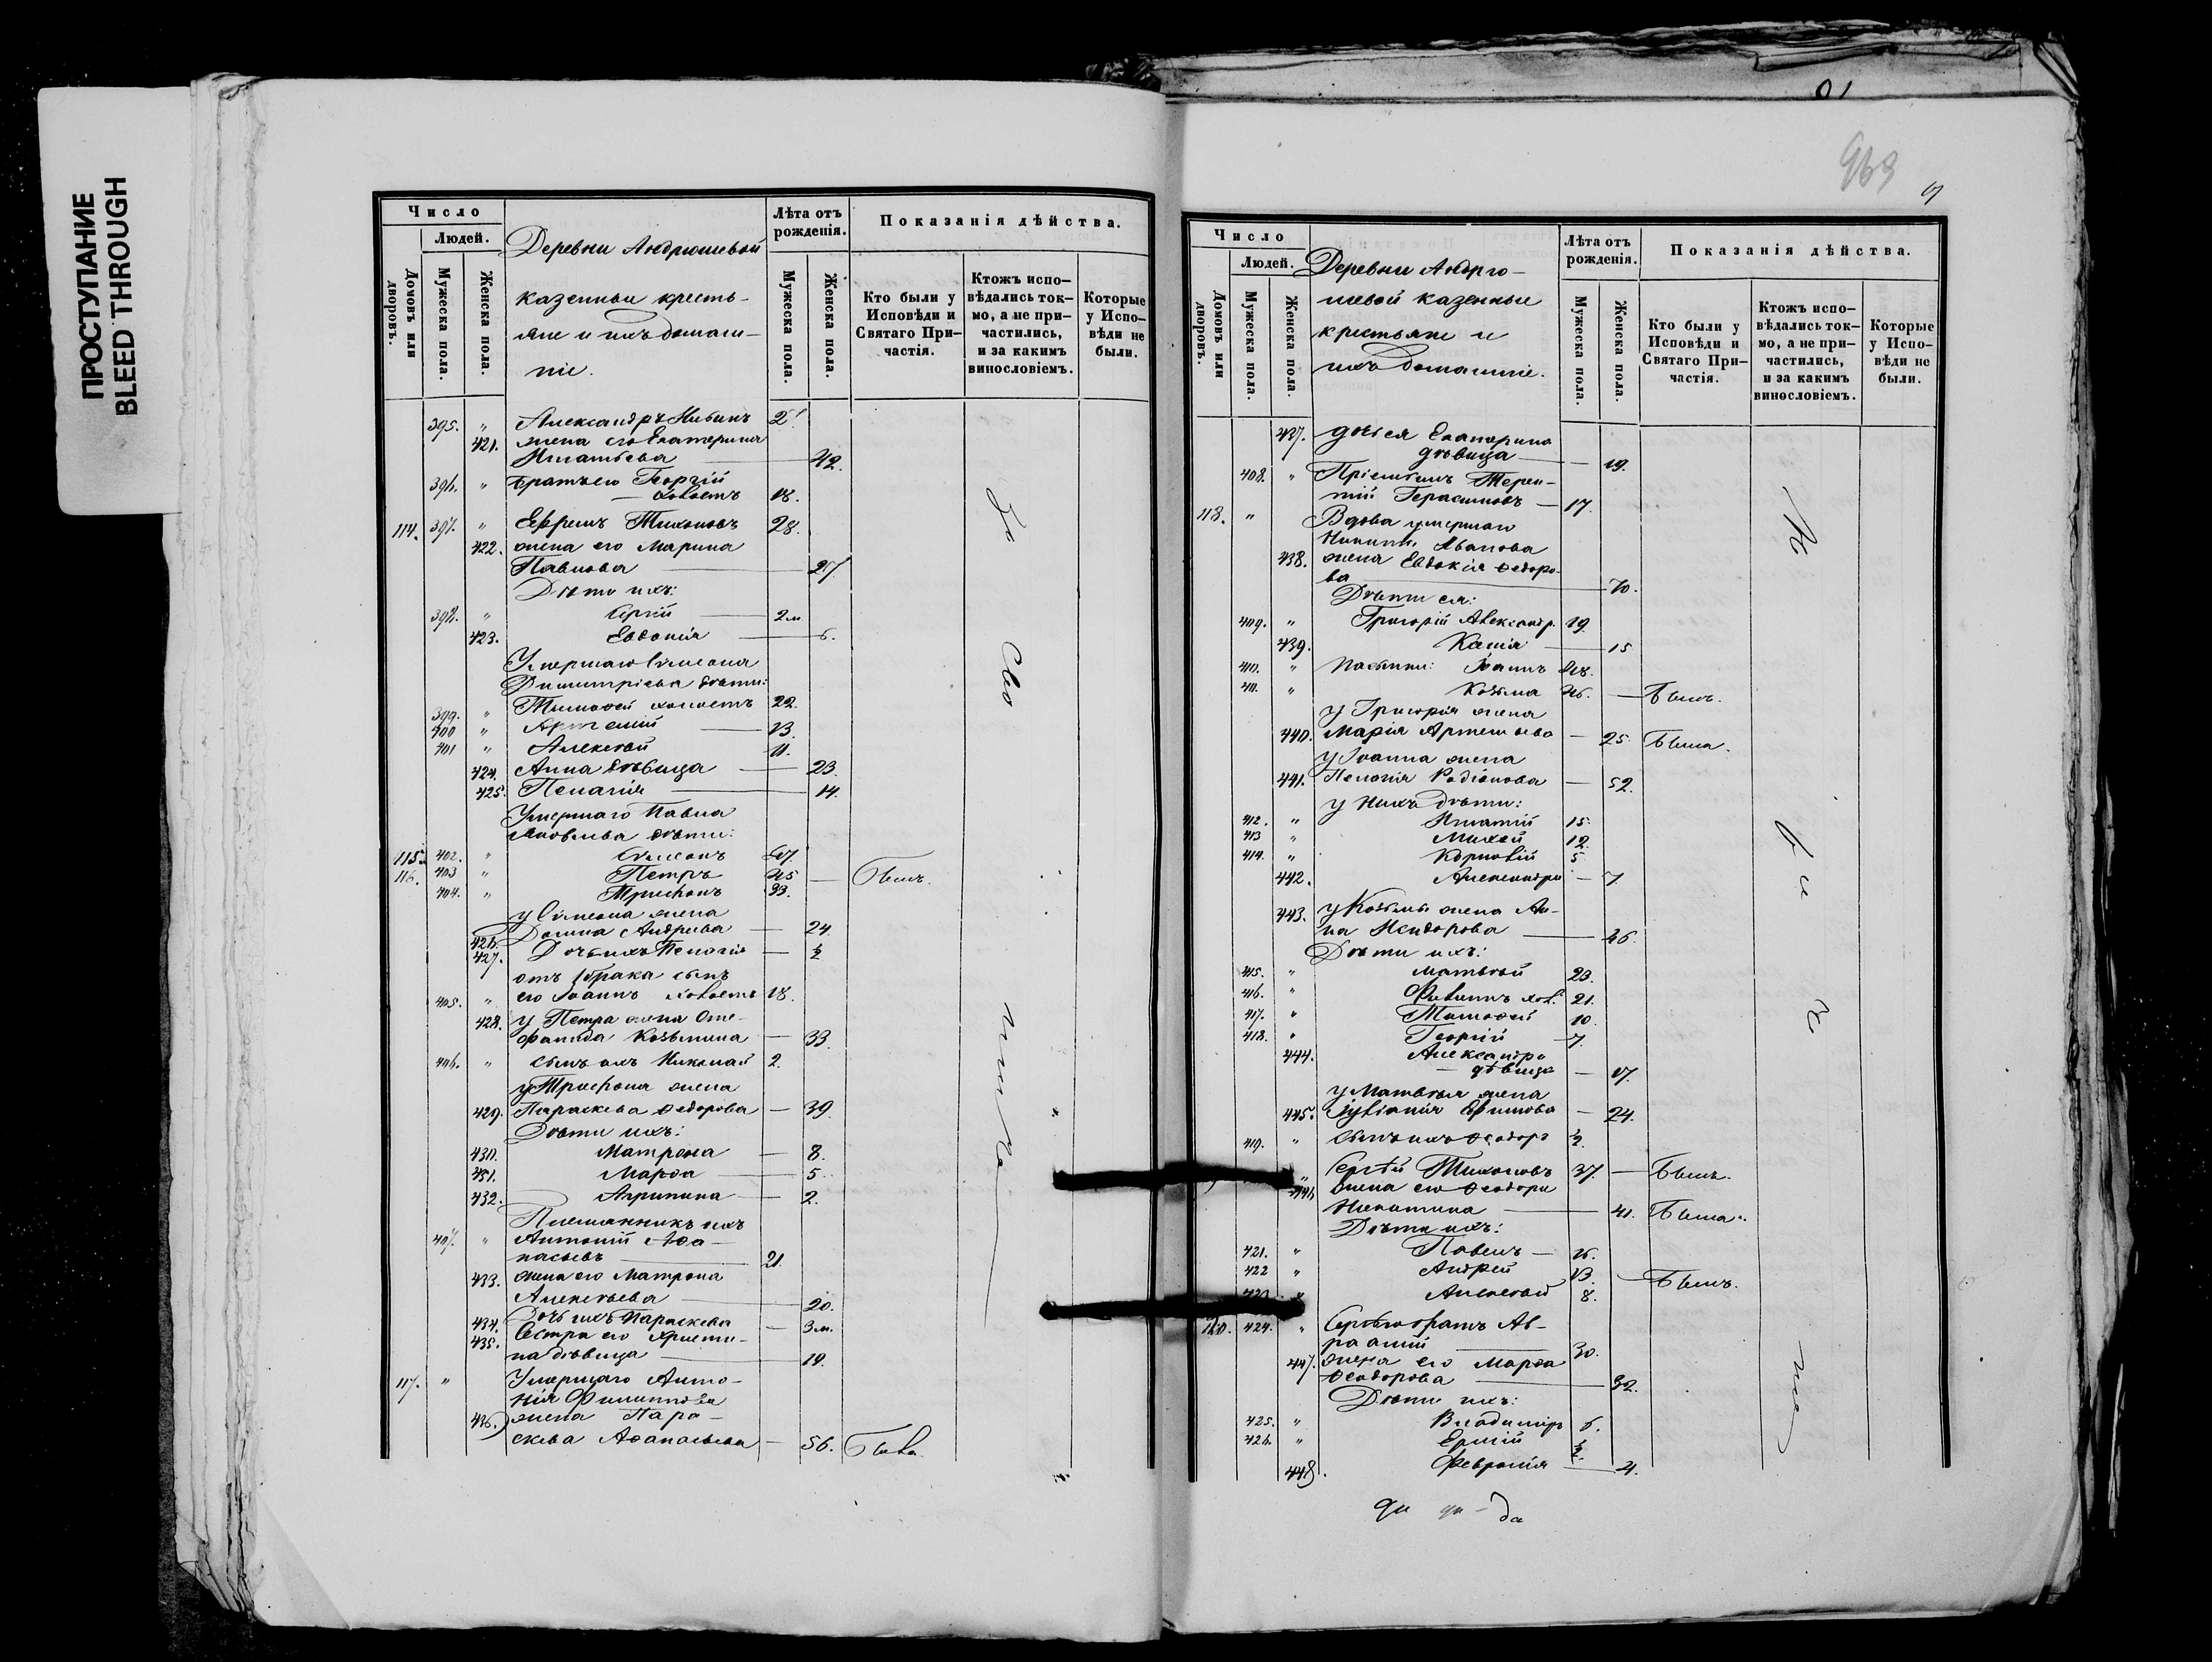 ПРОСТУПАНИЕ
BLEED THROUGH
Число
Людей.
Домовъ или дворовъ.
Мужеска пола.
Женска пола.
Деревни Андрюшевой
казенныи кресть-
яне и ихъ домаш-
ніе.
Лѣта отъ рожденія.
Мужеска пола.
Женска пола.
Показанія дѣйства.
Кто были у Исповѣди и Святаго При-частія.
Ктожъ испо-вѣдались ток-мо, а не при-частились, и за какимъ винословіемъ.
Которые у Испо-вѣди не были.
395. " Александръ
421. жена его Екатерина
Игнатьева 42.
396. " братъ его Георгій
холостъ 18.
114. 397. " Ефремъ Тихоновъ 28.
422. жена его Марина
Павлова 27
Дѣти ихъ:
398. " Сергій 2м
423. Евдокія 6.
Умершаго Симеона
Димитріева дѣти:
399. " Тимофей холостъ 22.
400 " Артемій 13.
401 " Алексѣй 11.
424. Анна дѣвица 23.
425. Пелагія 14.
Умершаго Павла
Яковлева дѣти:
115. 402. " Симеонъ 47.
116. 403 " Петръ 45 Былъ.
404. " Трифонъ 33.
у Симеона жена
426. Домна Андреева 24.
427. Дочь ихъ Пелагія ½
отъ 1 брака сынъ
405. " его Іоаннъ холостъ 18.
428. у Петра жена Сте-
фанида Козьмина 33
406. " сынъ ихъ Николай 2.
у Трифона жена
429. Параскева Ѳедорова 39.
Дѣти ихъ:
430. Матрона 8.
431. Марѳа 5.
432. Агрипина 2.
Племянникъ ихъ
407. " Антоній Аѳа-
насьевъ 21.
433. жена его Матрона
Алексѣева 20.
434. Дочь ихъ Параскева 3м.
435. Сестра его Христи-
на дѣвица 19.
117. " Умершаго Анто-
нія Филиппова
436. жена Пара-
скева Аѳанасьева 56. Была
969
Число
Людей.
Домовъ или дворовъ.
Мужеска пола.
Женска пола.
Деревни Андрю-
шевой казенныи
крестьяне и
ихъ домашніе.
Лѣта отъ рожденія.
Мужеска пола.
Женска пола.
Показанія дѣйства.
Кто были у Исповѣди и Святаго При-частія.
Ктожъ испо-вѣдались ток-мо, а не при-частились, и за какимъ винословіемъ.
Которые у Испо-вѣди не были.
437. дочь ея Екатерина
дѣвица 19.
408. " Пріемышъ Терен-
тій Герасимовъ 17.
118. " Вдова умершаго
Никиты Иванова
438. жена Евдокія Ѳедоро-
ва 70.
Дѣти ея:
409. " Григорій Александр. 19.
439. Ксенія 15
410. " Пасынки: Іоаннъ 48.
411. " Козьма 46. Былъ.
у Григорія жена
440. Марія Артемьева 25. Была.
у Іоанна жена
441. Пелагія Родіонова 52.
у нихъ дѣти:
412. " Игнатій 15.
413 " Михей 12.
414. " Корнилій 5.
442. Александра 7.
443. у Козьмы жена Ан-
на Исидорова 46.
Дѣти ихъ:
415. " Матвѣй 23.
416. " Филиппъ хол. 21.
417. " Тимофей 10.
418. " Георгій 7.
444. Александра
дѣвица 17.
у Матвѣя жена
445. Іуліанія Ефимова 24.
419. " сынъ ихъ Ѳеодоръ ½.
" Сергѣй Тихоновъ 37. Былъ.
446. жена его Ѳеодора
Никитина 41. Была.
Дѣти ихъ:
421. " Павелъ 16.
422 " Андрей 13. Былъ.
Алексѣй 8.
120. 424. " Сергѣя братъ Ав-
раамій 30.
447. жена его Марѳа
Ѳеодорова 32.
Дѣти ихъ:
425. " Владиміръ 6.
426. " Ермій ½.
448. Февронія 4.